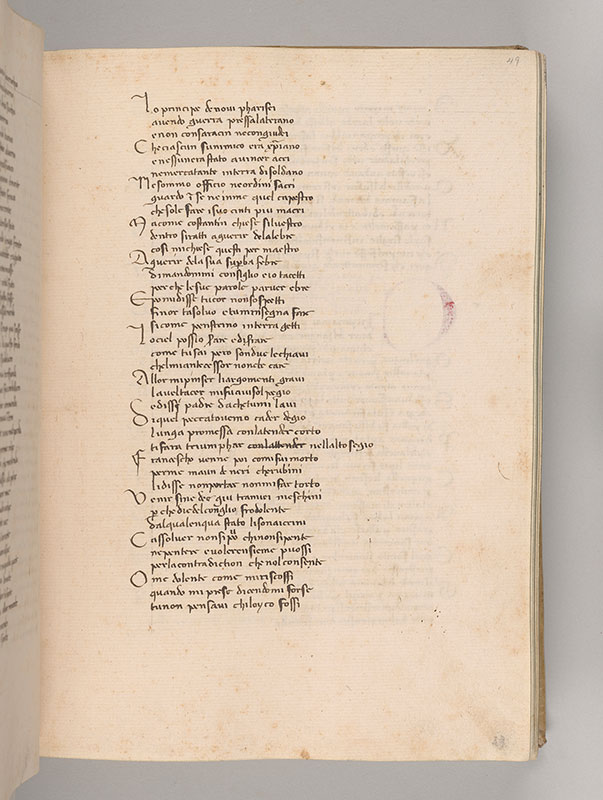 49
Lo principe denovi pharisei
avendo guerra pressalaterano
enon consaracin necongiudi
Che ciascun suinimico era xpiano
enessunera stato avincer acri
nemercatante interra disoldano
Ne sommo officio neordini sacri
guardo i se ne inme quel capestro
che sole fare isuo cinti piu macri
Ma come costantin chiese silvestro
dentro siratti aguerir delalebre
cosi michiese questi per maestro
Aguerir dela sua supba febre
dimandommi consiglio e io tacetti
per che lesue parole parver ebre
E poi midisse tuo cor non sospetti
finor tasolvo etu minsegna fare
si come penestrino interra getti
Lo ciel possio serrare e diserrare
come tu sai pero son due le chiavi
chel mi antecessor non ebbe care
Allor mi pinser li argomenti gravi
la vel tacer mi fu aviso l pegio
E dissi padre da che tu mi lavi
Di quel peccato ovemo cader degio
lunga promessa conlatender corto
ti fara triumphar nellalto segio
Francescho venne poi comi fui morto
per me ma un de neri cherubini
li disse non portar non mi far torto
Venir sine dee giu tra miei meschini
p che diede l consiglio frodolente
dal quale in qua stato li sono a crini
Cassolver non si po chi non si pente
ne pentere e volere insieme puossi
per la contradiction che nol consente
O me dolente come mi riscossi
quando mi prese dicendomi forse
tu non pensavi chi loyco fossi